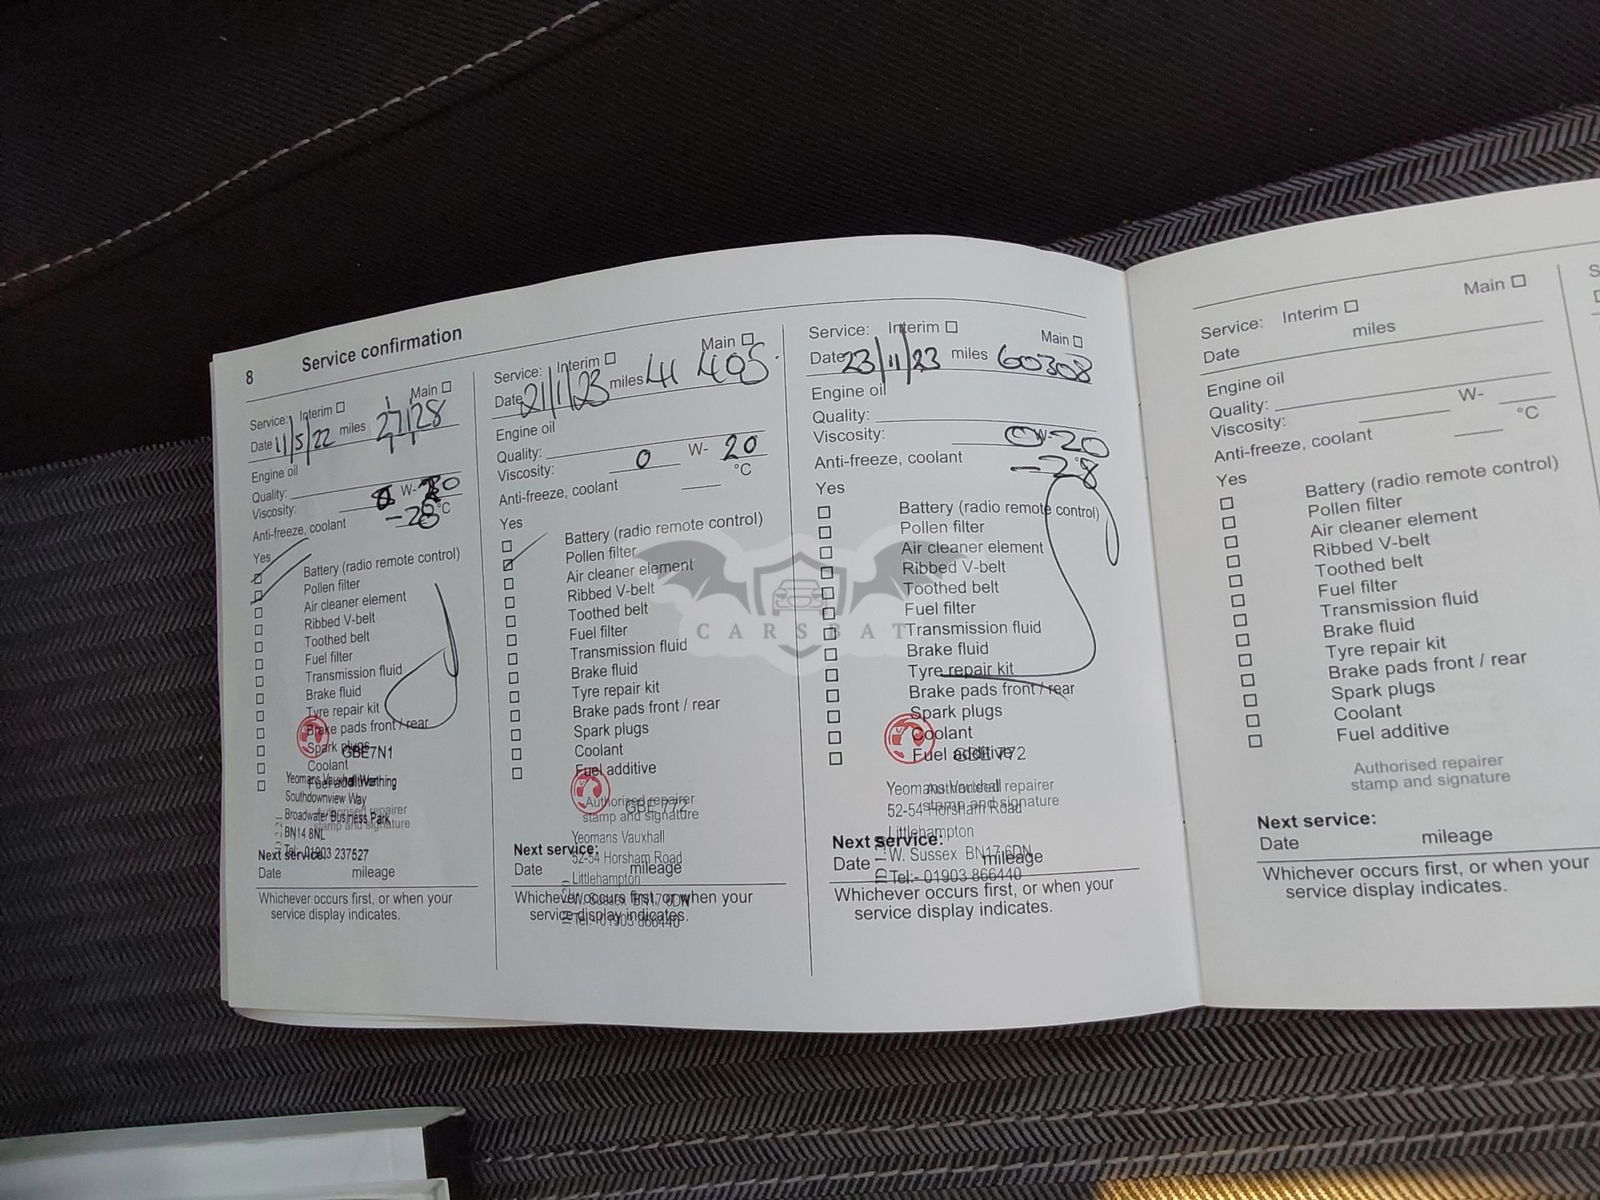 8 Service confirmation
Service: Interim Main
Date 11/5/22 miles 27128
Engine oil
Quality:
Viscosity: 0 W- 20
Anti-freeze, coolant -28 °C
Yes
Battery (radio remote control)
Pollen filter
Air cleaner element
Ribbed V-belt
Toothed belt
Fuel filter
Transmission fluid
Brake fluid
Tyre repair kit
Brake pads front / rear
Spark plugs
GBE7N1
Coolant
Fuel additive
Yeomans Vauxhall Worthing
Southdownview Way
Broadwater Business Park
BN14 8NL
Tel:- 01903 237527
Authorised repairer
stamp and signature
Next service:
Date mileage
Whichever occurs first, or when your
service display indicates.
Service: Interim Main
Date 21/1/23 miles 41 405
Engine oil
Quality:
Viscosity: 0 W- 20
Anti-freeze, coolant °C
Yes
Battery (radio remote control)
Pollen filter
Air cleaner element
Ribbed V-belt
Toothed belt
Fuel filter
Transmission fluid
Brake fluid
Tyre repair kit
Brake pads front / rear
Spark plugs
Coolant
Fuel additive
Authorised repairer
stamp and signature
GBE 772
Yeomans Vauxhall
52-54 Horsham Road
Littlehampton
W. Sussex BN17 6DN
Tel:- 01903 866440
Next service:
Date mileage
Whichever occurs first, or when your
service display indicates.
Service: Interim Main
Date 23/11/23 miles 60308
Engine oil
Quality:
Viscosity: 0 W- 20
Anti-freeze, coolant -28 °C
Yes
Battery (radio remote control)
Pollen filter
Air cleaner element
Ribbed V-belt
Toothed belt
Fuel filter
Transmission fluid
Brake fluid
Tyre repair kit
Brake pads front / rear
Spark plugs
Coolant
Fuel additive
GBE 772
Yeomans Vauxhall
52-54 Horsham Road
Littlehampton
W. Sussex BN17 6DN
Tel:- 01903 866440
Authorised repairer
stamp and signature
Next service:
Date mileage
Whichever occurs first, or when your
service display indicates.
CARSBAT
Service: Interim Main
Date miles
Engine oil
Quality:
Viscosity: W-
Anti-freeze, coolant °C
Yes
Battery (radio remote control)
Pollen filter
Air cleaner element
Ribbed V-belt
Toothed belt
Fuel filter
Transmission fluid
Brake fluid
Tyre repair kit
Brake pads front / rear
Spark plugs
Coolant
Fuel additive
Authorised repairer
stamp and signature
Next service:
Date mileage
Whichever occurs first, or when your
service display indicates.